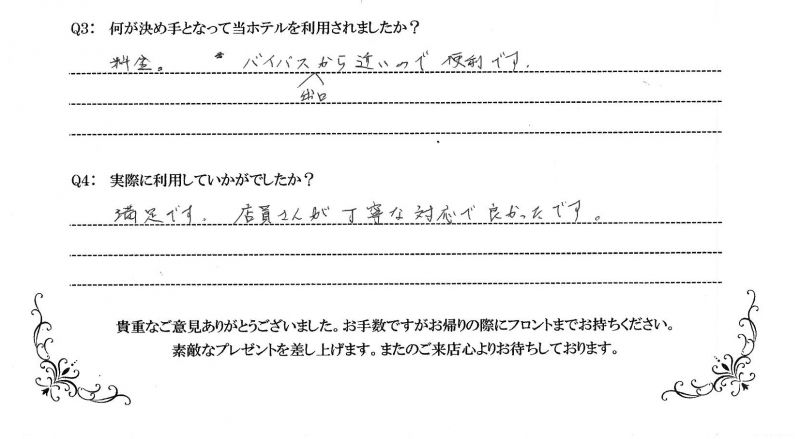 Q3: 何が決め手となって当ホテルを利用されましたか？
料金。 バイパスから近いので便利です。
出口
Q4: 実際に利用していかがでしたか？
満足です。 店員さんが丁寧な対応で良かったです。
貴重なご意見ありがとうございました。お手数ですがお帰りの際にフロントまでお持ちください。
素敵なプレゼントを差し上げます。またのご来店心よりお待ちしております。